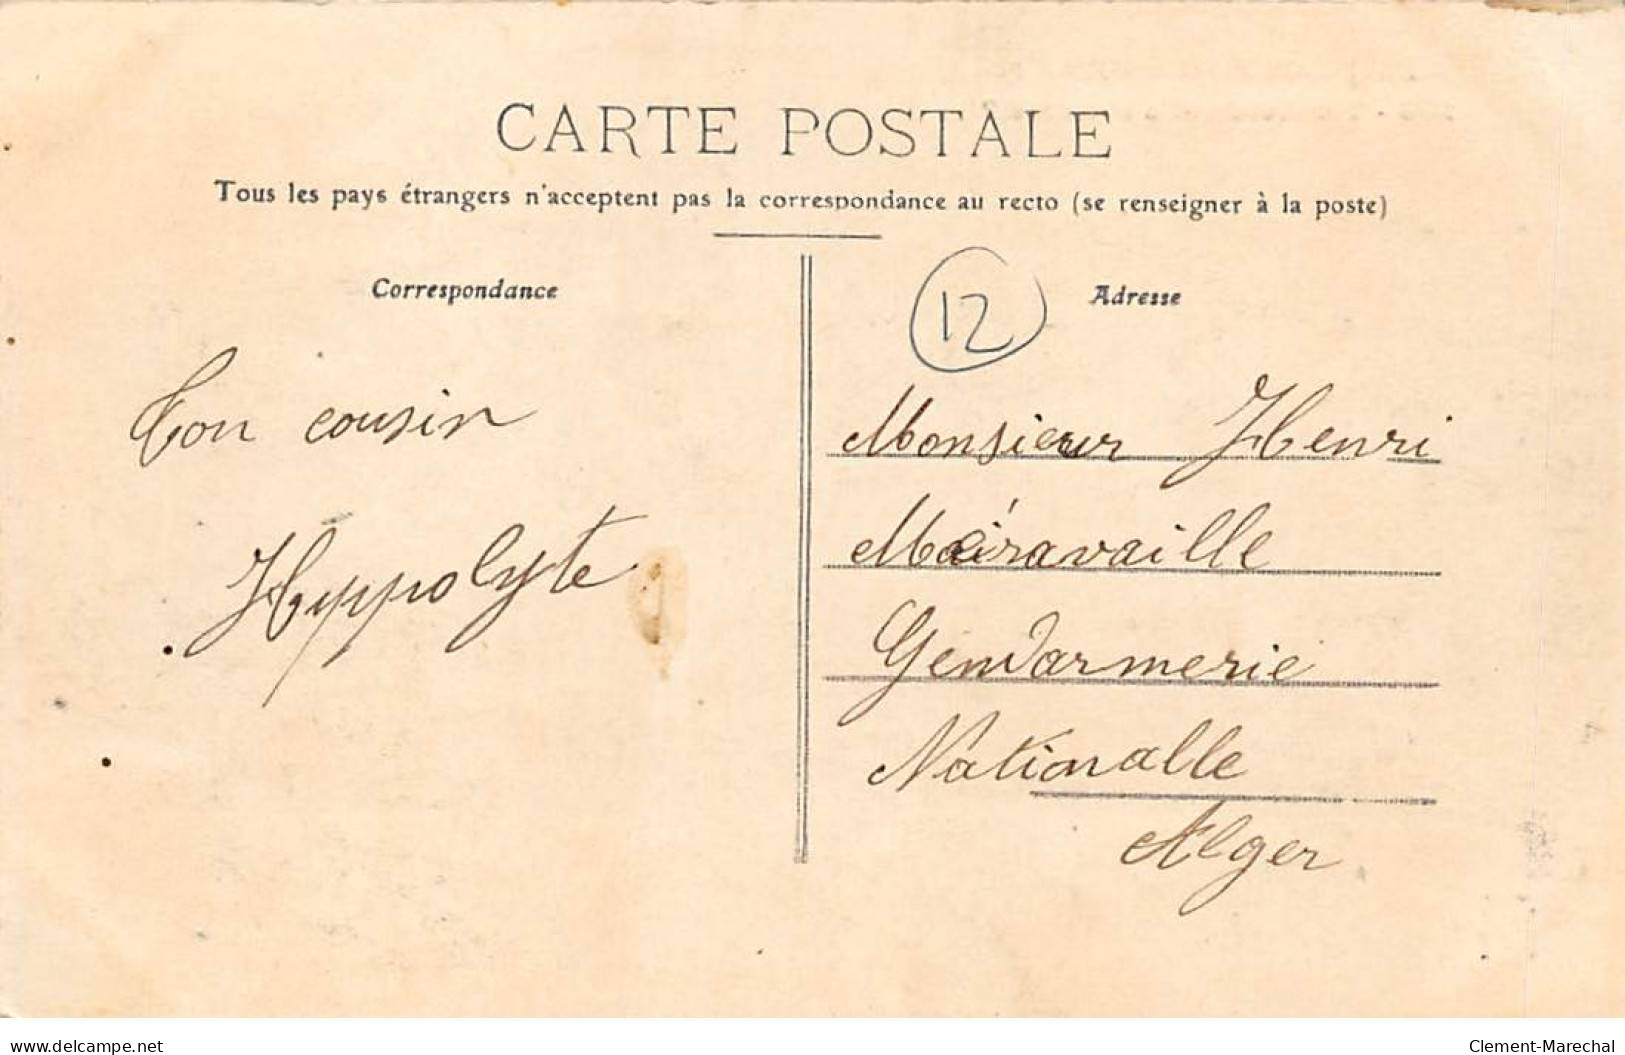 CARTE POSTALE
Tous les pays étrangers n'acceptent pas la correspondance au recto (se renseigner à la poste)
Correspondance
Ton cousin
Hyppolyte
12
Adresse
Monsieur Henri
Méravaille
Gendarmerie
Nationalle
Alger
www.delcampe.net
Clement-Marechal